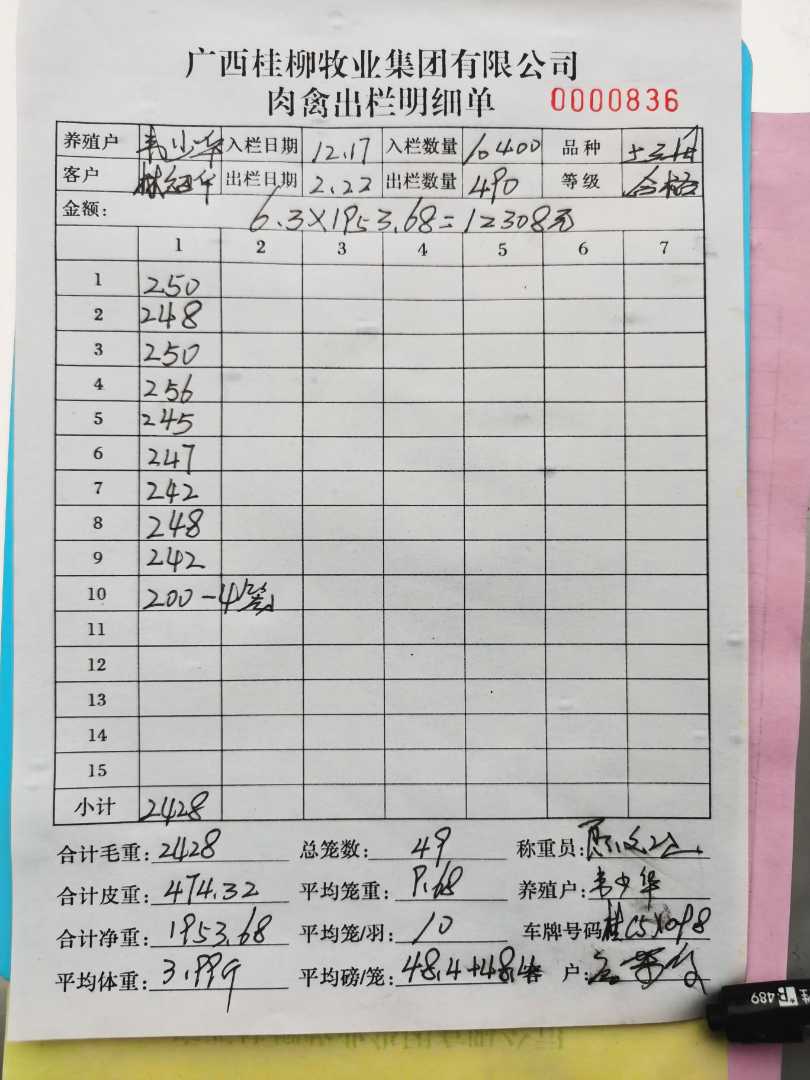 广西桂柳牧业集团有限公司
肉禽出栏明细单 0000836
养殖户 韦少华 入栏日期 12.17 入栏数量 10400 品种
客户 出栏日期 2.22 出栏数量 490 等级 合格
金额: 6.3×1953.68=12308元
1 2 3 4 5 6 7
1 250
2 248
3 250
4 256
5 245
6 247
7 242
8 248
9 242
10 200-4笼
11
12
13
14
15
小计 2428
合计毛重: 2428 总笼数: 49 称重员:
合计皮重: 474.32 平均笼重: 9.68 养殖户: 韦少华
合计净重: 1953.68 平均笼/羽: 10 车牌号码
平均体重: 3.99 平均磅/笼: 48.4+48.4 客户:
489